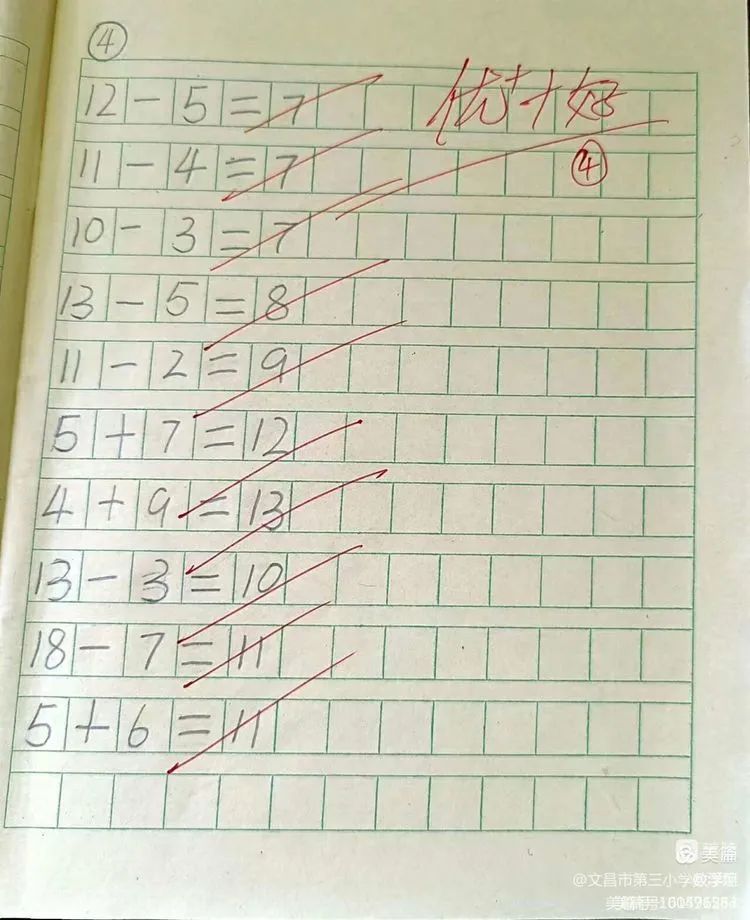 ④
12-5=7
优++好
④
11-4=7
10-3=7
13-5=8
11-2=9
5+7=12
4+9=13
13-3=10
18-7=11
5+6=11
美篇
@文昌市第三小学